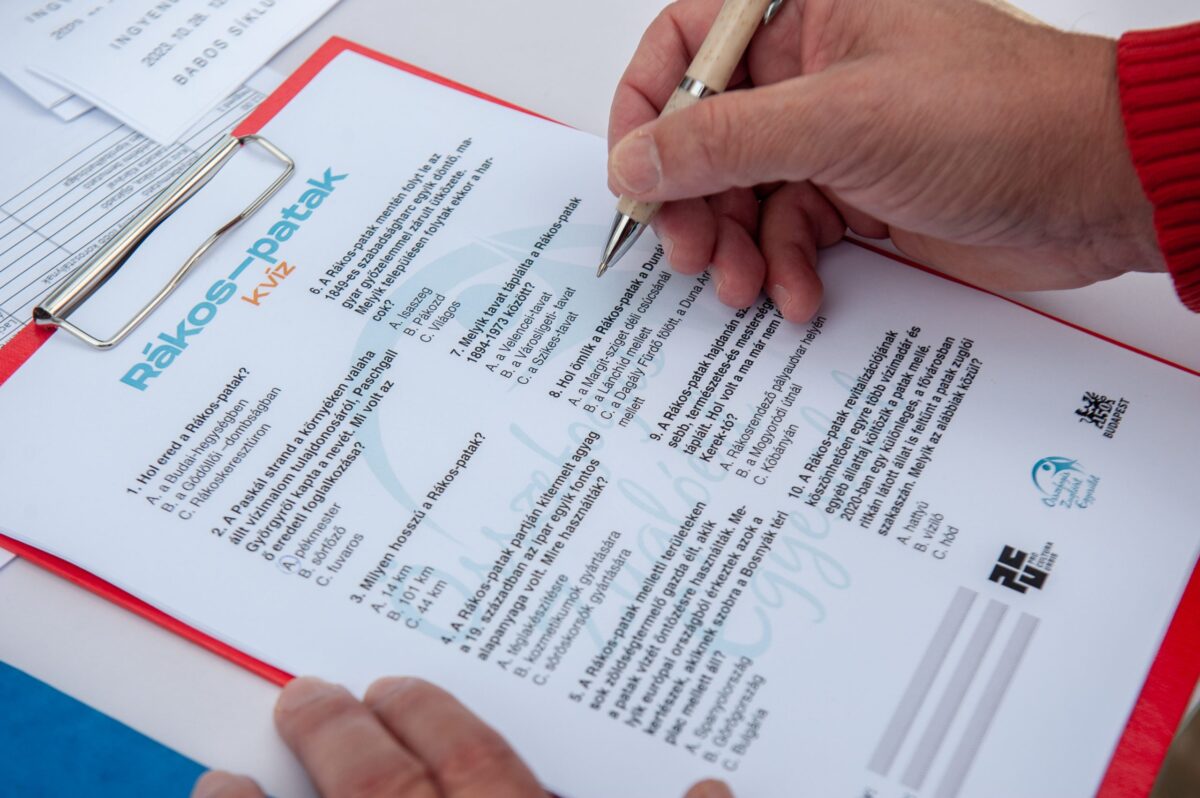 INGYENE
2023. 10. 28. 12
BABOS SÍKLU
Rákos-patak
kvíz
1. Hol ered a Rákos-patak?
A. a Budai-hegységben
B. a Gödöllői-dombságban
C. Rákoskeresztúron
2. A Paskál strand a környéken valaha
állt vízimalom tulajdonosáról, Paschgall
Györgyről kapta a nevét. Mi volt az
ő eredeti foglalkozása?
A. pékmester
B. sörfőző
C. fuvaros
3. Milyen hosszú a Rákos-patak?
A. 14 km
B. 101 km
C. 44 km
4. A Rákos-patak partján kitermelt agyag
a 19. században az ipar egyik fontos
alapanyaga volt. Mire használták?
A. téglakészítésre
B. kozmetikumok gyártására
C. söröskorsók gyártására
5. A Rákos-patak melletti területeken
sok zöldségtermelő gazda élt, akik
a patak vizét öntözésre használták. Me-
lyik európai országból érkeztek azok a
kertészek, akiknek szobra a Bosnyák téri
piac mellett áll?
A. Spanyolország
B. Görögország
C. Bulgária
6. A Rákos-patak mentén folyt le az
1849-es szabadságharc egyik döntő, ma-
gyar győzelemmel zárult ütközete.
Melyik településen folytak ekkor a har-
cok?
A. Isaszeg
B. Pákozd
C. Világos
7. Melyik tavat táplálta a Rákos-patak
1894-1973 között?
A. a Velencei-tavat
B. a Városligeti-tavat
C. a Szikes-tavat
8. Hol ömlik a Rákos-patak a Duná
A. a Margit-sziget déli csúcsánál
B. a Lánchíd mellett
C. a Dagály Fürdő fölött, a Duna
mellett
9. A Rákos-patak hajdanán
sebb, természetes-és mesterség
táplált. Hol volt a ma már nem
Kerek-tó?
A. Rákosrendező pályaudvar helyén
B. a Mogyoródi útnál
C. Kőbányán
10. A Rákos-patak revitalizációjának
köszönhetően egyre több vízimadár és
egyéb állatfaj költözik a patak mellé.
2020-ban egy különleges, a fővárosban
ritkán látott állat is feltűnt a patak zuglói
szakaszán. Melyik az alábbiak közül?
A. hattyú
B. víziló
C. hód
BUDAPEST